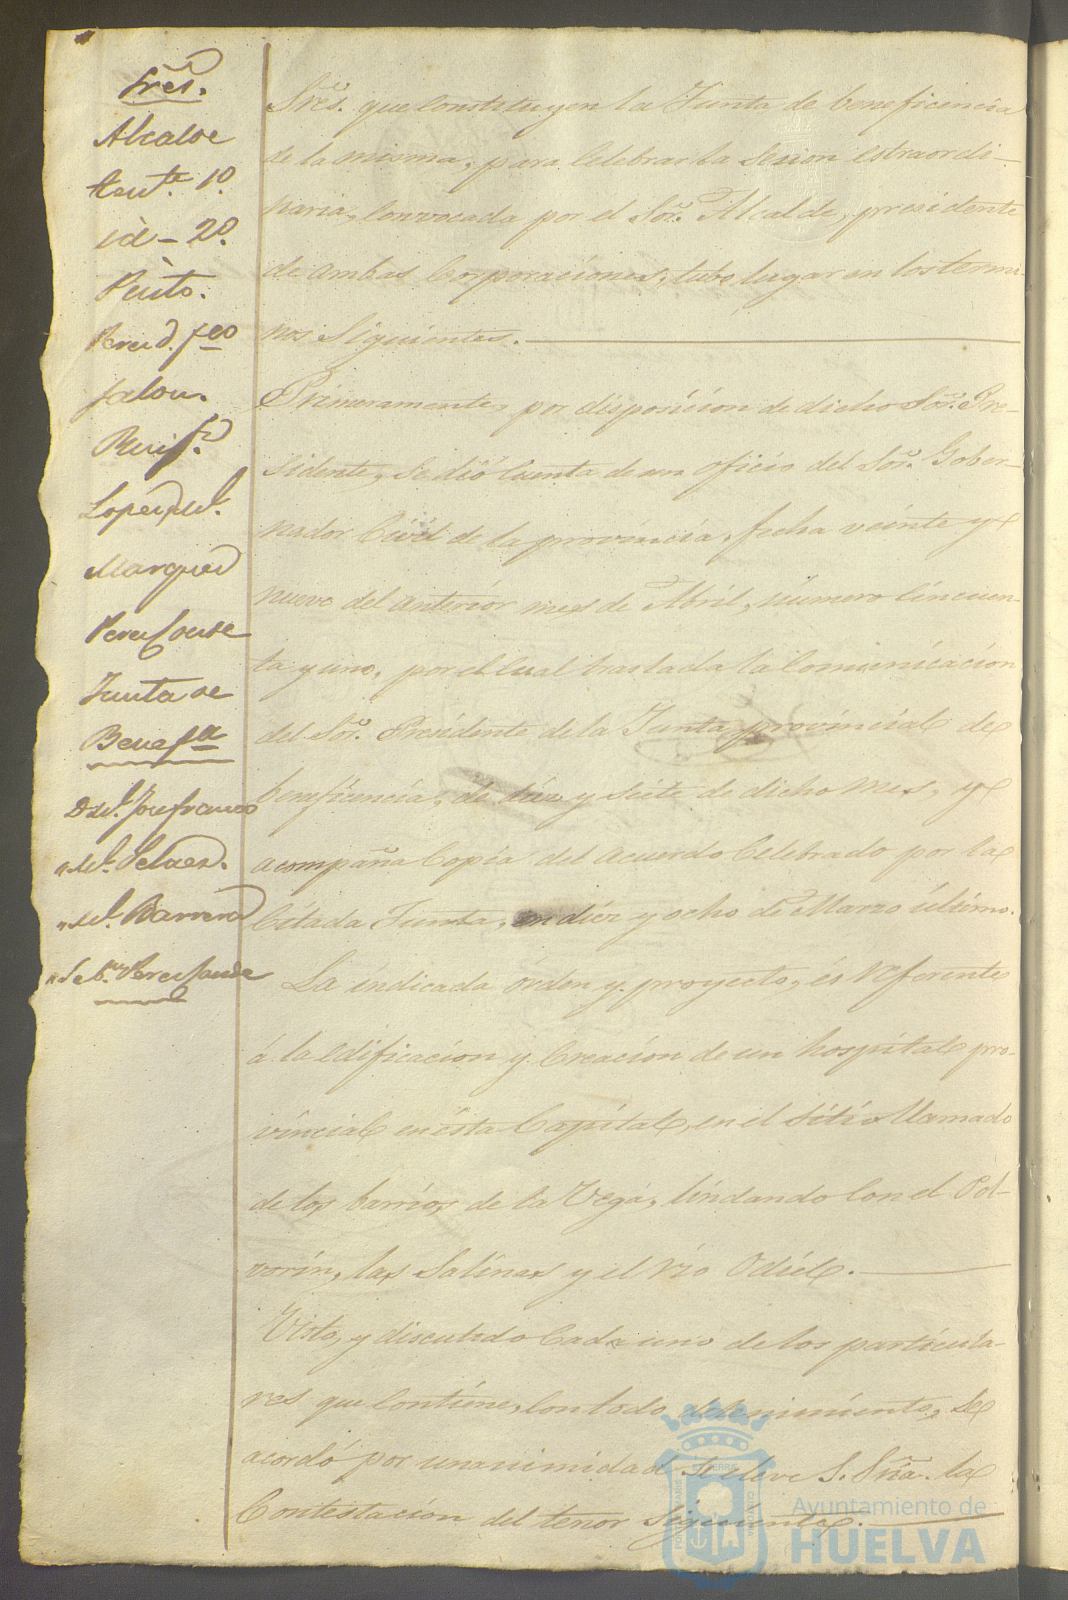 Sres.
Alcalde
tente. 1º.
id – 2º.
Períto.
Jalon.
Marquez
Perez Conde
Junta de
Benefa
Dn. Jose franco
" Barrera
Sres. que constituyen la Junta de beneficencia
de la misma, para celebrar la Sesion estraordi-
naria, convocada por el Sor. Alcalde, presidente
de ambas Corporaciones, tubo lugar en los termi-
nos siguientes.
Primeramente, por disposicion de dicho Sor. Pre-
sidente, se dió cuenta de un oficio del Sor. Gober-
nador Civil de la provincia, fecha veinte y
nueve del anterior mes de Abril, número cincuen-
ta y uno, por el cual traslada la comunicacion
del Sor. Presidente de la Junta provincial de
beneficencia, de diez y siete de dicho mes, y
acompaña Copia del acuerdo celebrado por la
citada Junta, en diez y ocho de Marzo último.
La indicada órden y proyecto, és referente
á la edificacion y creacion de un hospital pro-
vincial en ésta Capital, en el sitio llamado
de los barrios de la Vega, lindando con el Pol-
vorin, las Salinas y el rio Odiel.
Visto, y discutido cada uno de los particula-
res que contiene, con todo detenimiento, se
acordó por unanimidad se eleve S. Sria. la
Contestacion del tenor siguiente.
Ayuntamiento de
HUELVA